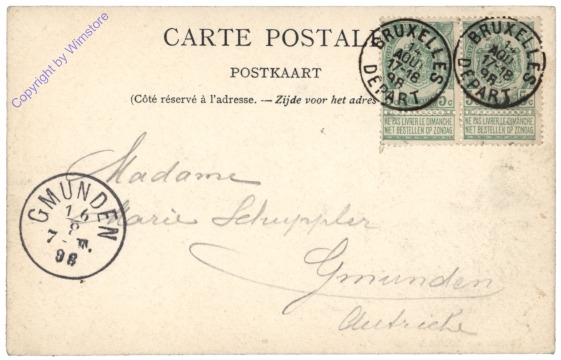 Copyright by Wimstore
CARTE POSTALE
POSTKAART
(Côté réservé à l'adresse. — Zijde voor het adres
BRUXELLES
AOUT
17-18
98
DEPART
BRUXELLES
AOUT
17-18
98
DEPART
5c
5c
NE PAS LIVRER LE DIMANCHE
NIET BESTELLEN OP ZONDAG
NE PAS LIVRER LE DIMANCHE
NIET BESTELLEN OP ZONDAG
Madame
Marie Schuppler
Gmunden
Autriche
GMUNDEN
16
8
98